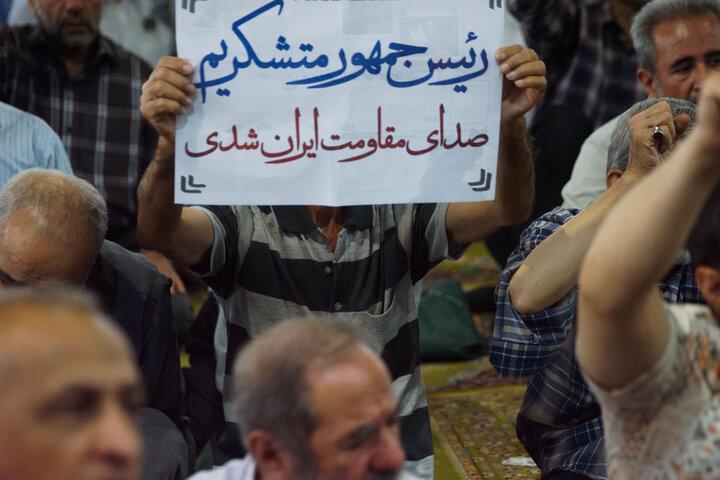 رئیس جمهور متشکریم
صدای مقاومت ایران شدی